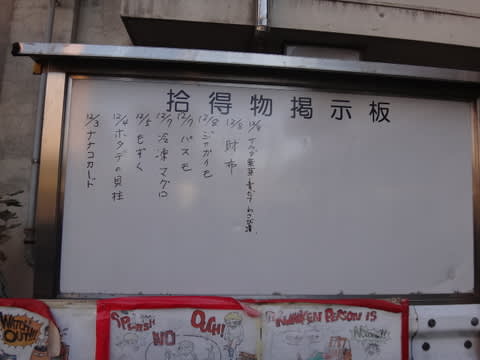 拾得物掲示板
12/3 ナナコカード
12/4 ホタテの貝柱
12/5 もずく
12/7 冷凍マグロ
12/7 パスモ
12/8 ジャガイモ
12/8 財布
わさび漬
WATCH OUT!!
SPLASH!!
NO
OUCH!
DRUNKEN PERSON IS